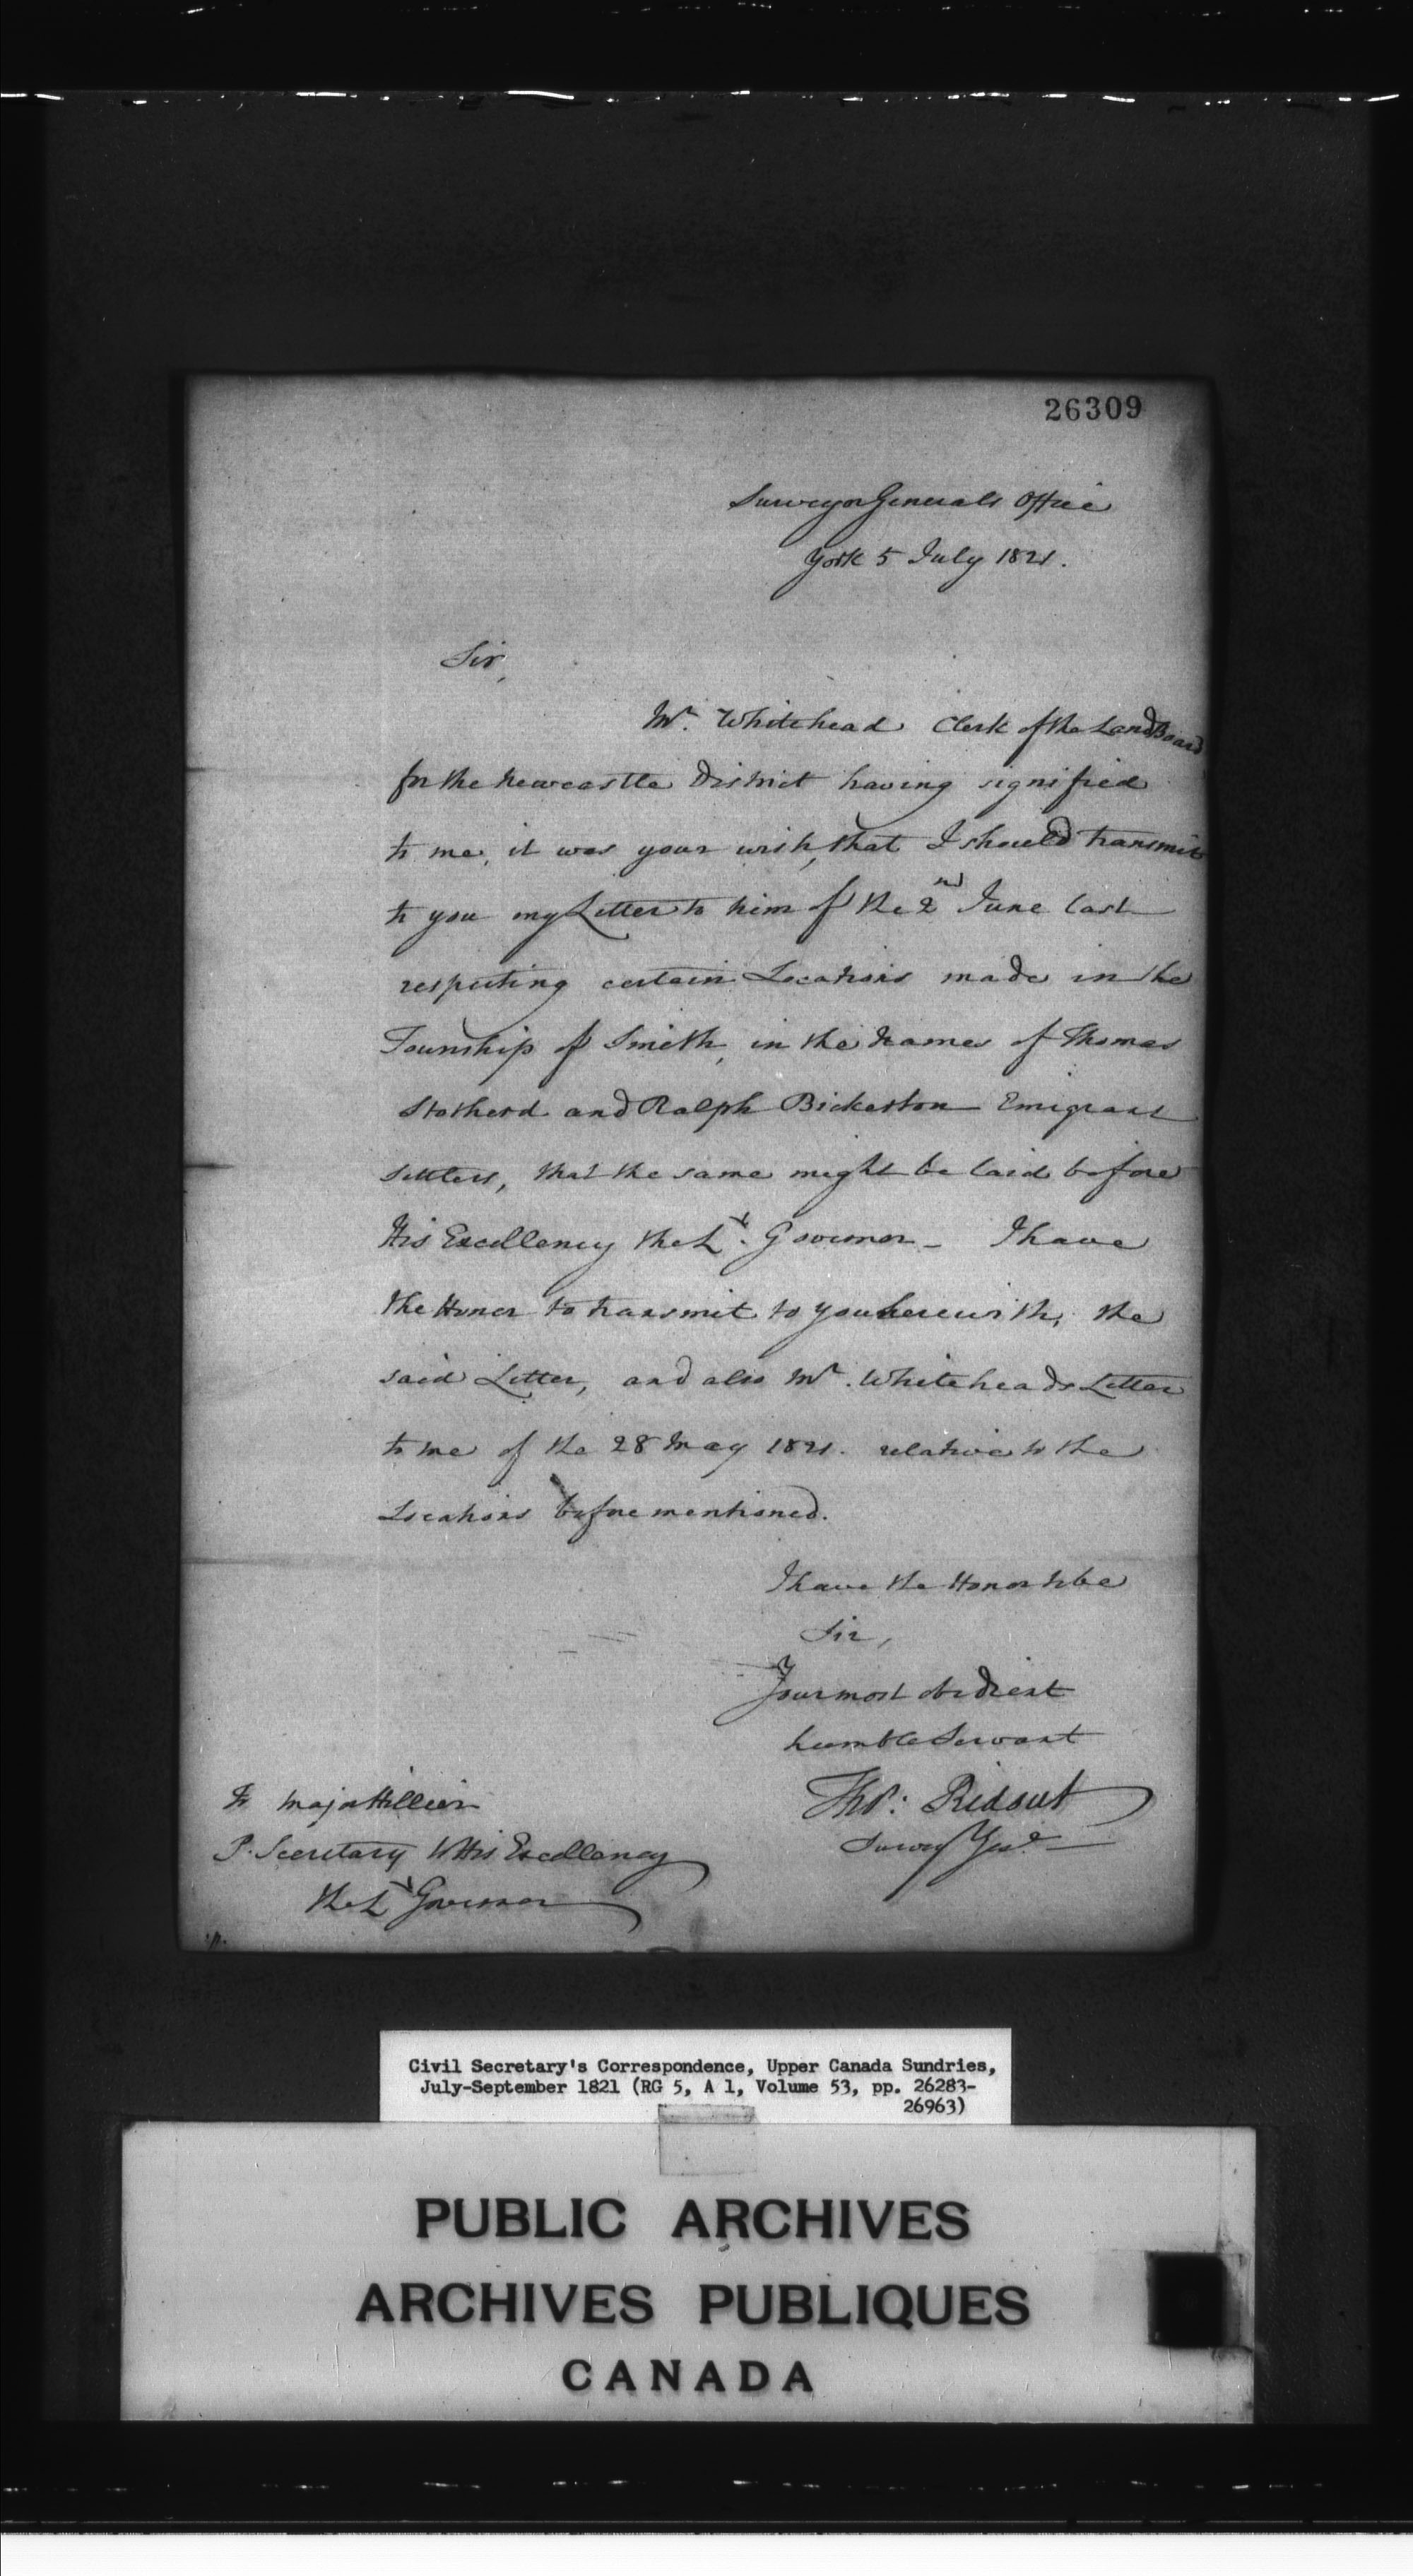 26309
Surveyor Generals Office
York 5 July 1821.
Sir,
Mr. Whitehead Clerk of the Land Board
for the Newcastle District having signified
to me, it was your wish, that I should transmit
to you my Letter to him of the 2nd June last
respecting certain Locations made in the
Township of Smith, in the Names of Thomas
Stotherd and Ralph Bickerton Emigrant
settlers, that the same might be laid before
His Excellency the Lt. Governor - I have
the Honor to transmit to you herewith, the
said Letter, and also Mr. Whiteheads Letter
to me of the 28 May 1821. relative to the
Locations before mentioned.
I have the Honor to be
Sir,
Your most obedient
humble Servant
Thos: Ridout
Survey Genl
To Major Hillier
P. Secretary to His Excellency
the Lt Governor
Civil Secretary's Correspondence, Upper Canada Sundries,
July-September 1821 (RG 5, A 1, Volume 53, pp. 26283-
26963)
PUBLIC ARCHIVES
ARCHIVES PUBLIQUES
CANADA